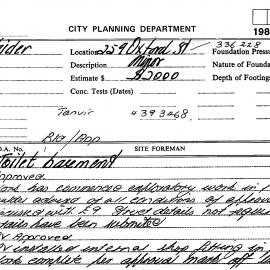 CITY PLANNING DEPARTMENT
198
Location 259 Oxford St
336228
Foundation Pressu
Description Minor
Nature of Founda
Estimate $ 2000
Depth of Footings
Conc. Tests (Dates)
Tanvir 4393468
Rka/App
O.A. No.
SITE FOREMAN
Toilet basement
Approved
work has commenced exploratory work in
advised of all conditions of approval
with struct details not
details have been submitted
Approved
internal shop fitting
work complete per approval mark off